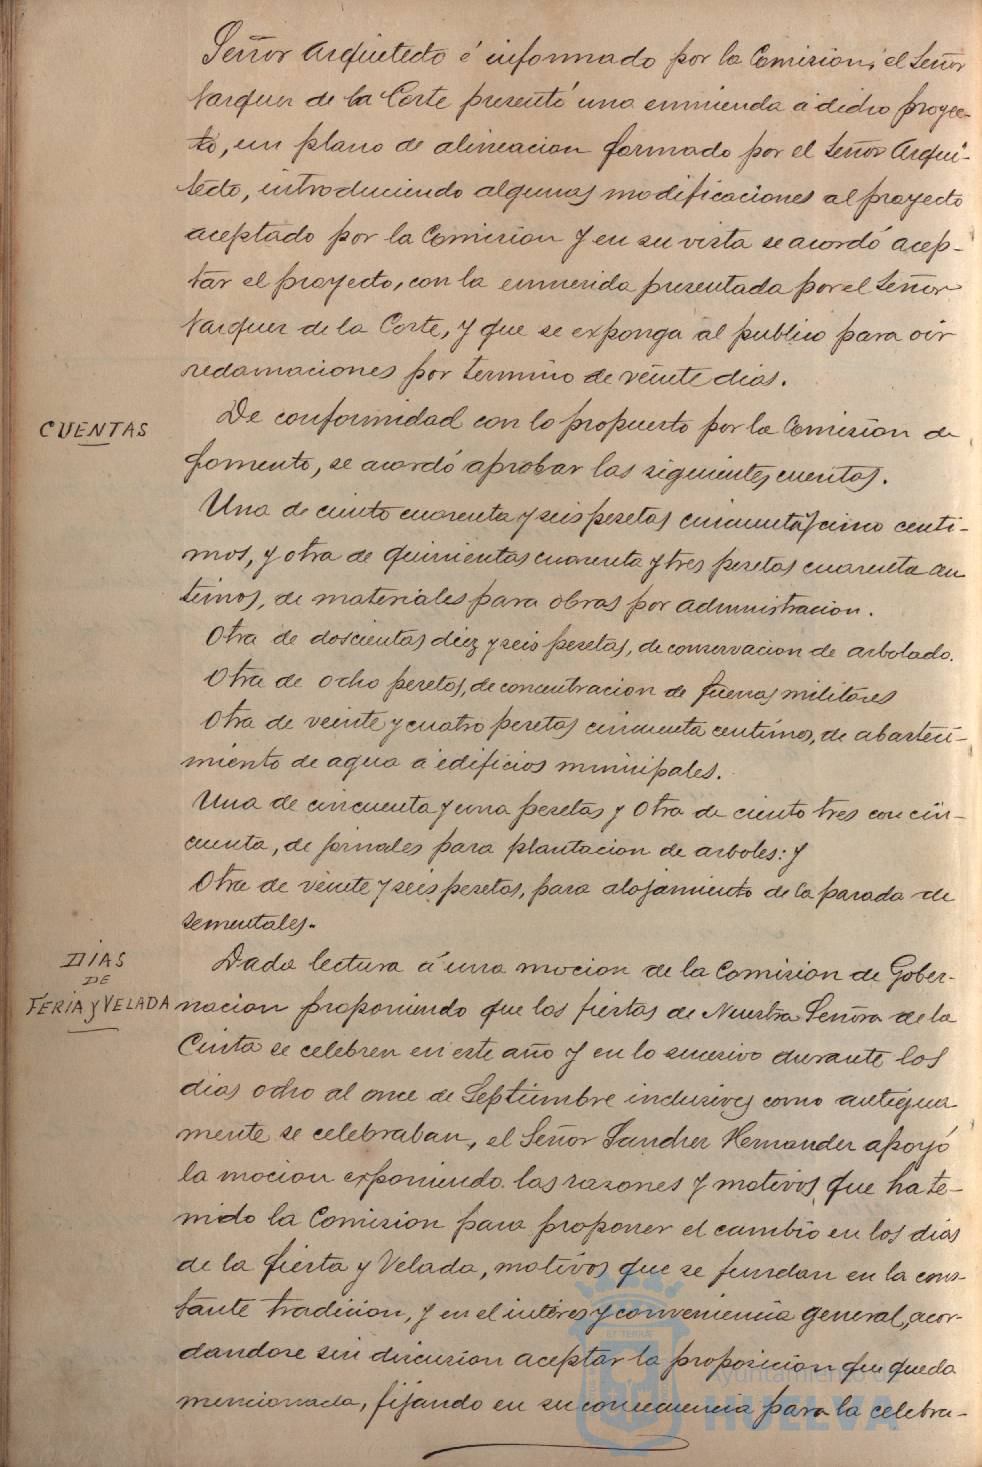 Señor Arquitecto é informado por la Comision, el Señor
Vazquez de la Corte presentó una enmienda á dicho proyec-
to, un plano de alineacion formado por el Señor Arqui-
tecto, introduciendo algunas modificaciones al proyecto
aceptado por la Comision y en su vista se acordó acep-
tar el proyecto, con la enmienda presentada por el Señor
Vazquez de la Corte, y que se exponga al publico para oir
reclamaciones por termino de veinte dias.
CUENTAS
De conformidad con lo propuesto por la Comision de
fomento, se acordó aprobar las siguientes cuentas.
Una de ciento cuarenta y seis pesetas cincuenta y cinco centi-
mos, y otra de quinientas cuarenta y tres pesetas cuarenta cen
timos, de materiales para obras por administracion.
Otra de doscientas diez y seis pesetas, de conservacion de arbolado.
Otra de ocho pesetas, de concentracion de fuerzas militares
Otra de veinte y cuatro pesetas cincuenta centimos, de abasteci-
miento de agua á edificios municipales.
Una de cincuenta y una pesetas y otra de ciento tres con cin-
cuenta, de jornales para plantacion de arboles: y
Otra de veinte y seis pesetas, para alojamiento de la parada de
sementales.
DÍAS
DE
FERIA Y VELADA
Dada lectura á una mocion de la Comision de Gober-
nacion proponiendo que las fiestas de Nuestra Señora de la
Cinta se celebren en este año y en lo sucesivo durante los
dias ocho al once de Septiembre inclusives como antigua
mente se celebraban, el Señor Sanchez Hernandez apoyó
la mocion exponiendo las razones y motivos que ha te-
nido la Comision para proponer el cambio en los dias
de la fiesta y Velada, motivos que se fundan en la cons-
tante tradicion, y en el interés y conveniencia general, acor-
dandose sin discusion aceptar la proposicion que queda
mencionada, fijando en su consecuencia para la celebra-
ET TERRA
Ayuntamiento de
HUELVA